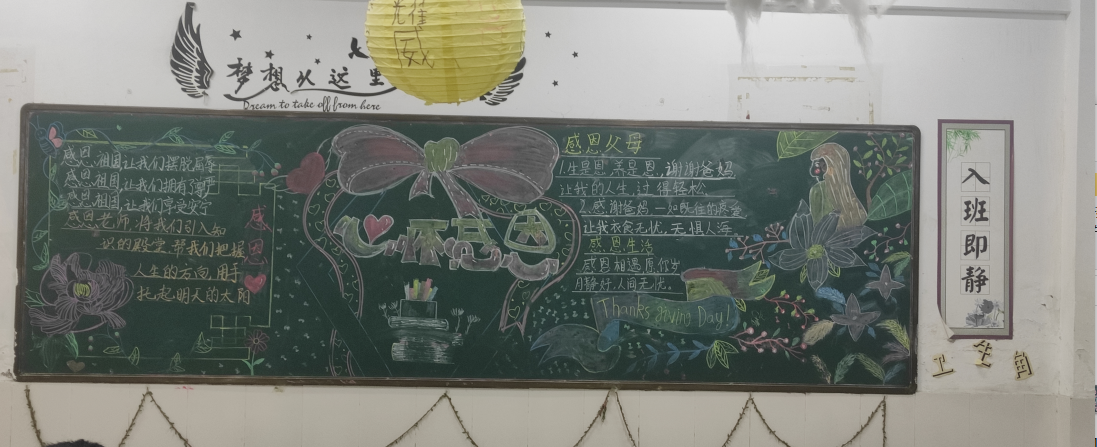 梦想从这里
Dream to take off from here
感恩祖国让我们摆脱屈辱
感恩祖国让我们拥有强严
感恩祖国让我们享受安宁
感恩老师将我们引入知
识的殿堂帮我们把握
人生的方向用手
托起明天的太阳
感恩
心怀感恩
感恩父母
1.生是恩,养是恩,谢谢爸妈
让我的人生,过得轻松
2.感谢爸妈一如既往的疼爱
让我衣食无忧,无惧人海
感恩生活
感恩相遇愿你岁
月静好,人间无忧。
Thanks giving Day!
入班即静
卫生角